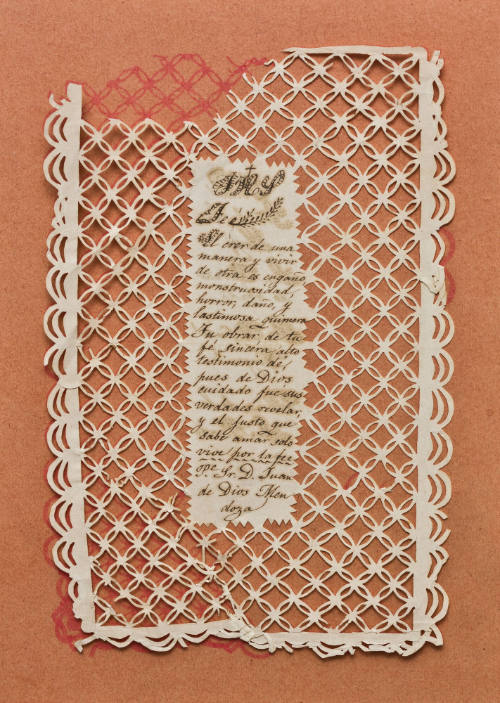 JHS
Fé
El creer de una
manera y vivir
de otra es engaño
monstruosidad,
horror, daño, y
lastimosa quimera
Tu obrar de tu
fé sincera alto
testimonio dé,
pues de Dios
cuidado fue sus
verdades revelar,
y el justo que
sabe amar solo
vive por la fee
Sr. D. Juan
de Dios Men
doza